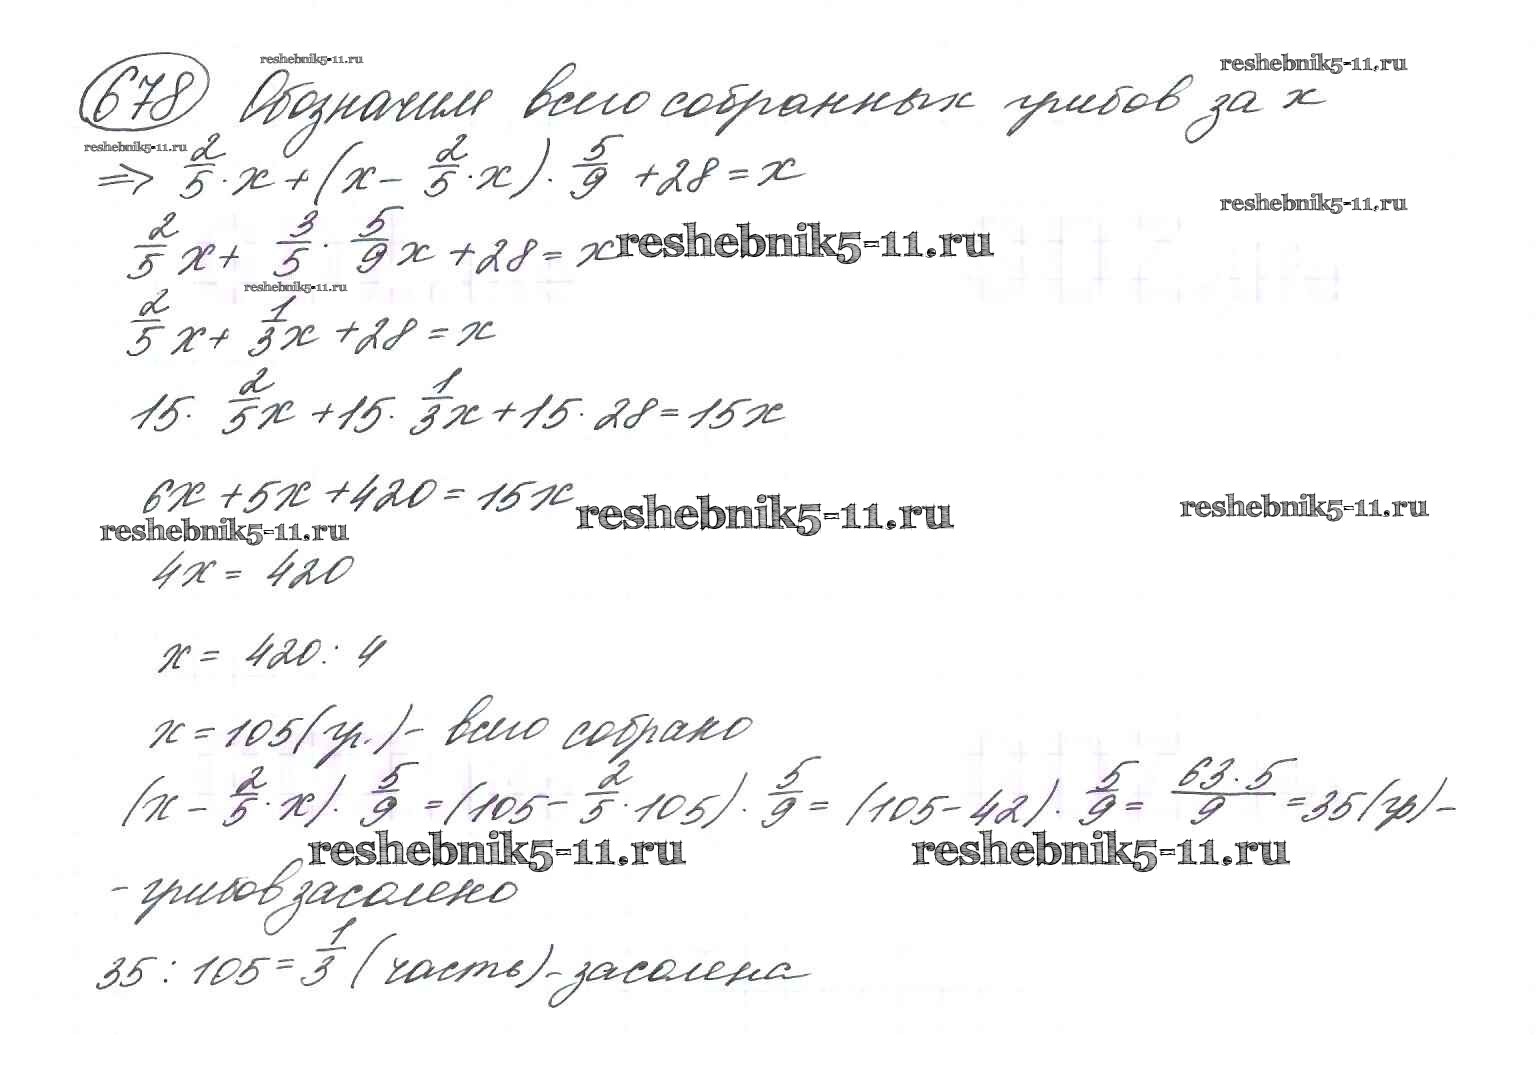 reshebnik5-11.ru
reshebnik5-11.ru
678 Обозначим всего собранных грибов за х
reshebnik5-11.ru
⇒ 2/5 · х + (х - 2/5 · х) · 5/9 + 28 = х
reshebnik5-11.ru
2/5 х + 3/5 · 5/9 х + 28 = х
reshebnik5-11.ru
reshebnik5-11.ru
2/5 х + 1/3 х + 28 = х
15 · 2/5 х + 15 · 1/3 х + 15 · 28 = 15х
6х + 5х + 420 = 15х
reshebnik5-11.ru
reshebnik5-11.ru
reshebnik5-11.ru
4х = 420
х = 420 : 4
х = 105 (гр.) - всего собрано
(х - 2/5 · х) · 5/9 = (105 - 2/5 · 105) · 5/9 = (105 - 42) · 5/9 = 63 · 5/9 = 35 (гр) -
reshebnik5-11.ru
reshebnik5-11.ru
- грибов засолено
35 : 105 = 1/3 (часть) - засолена